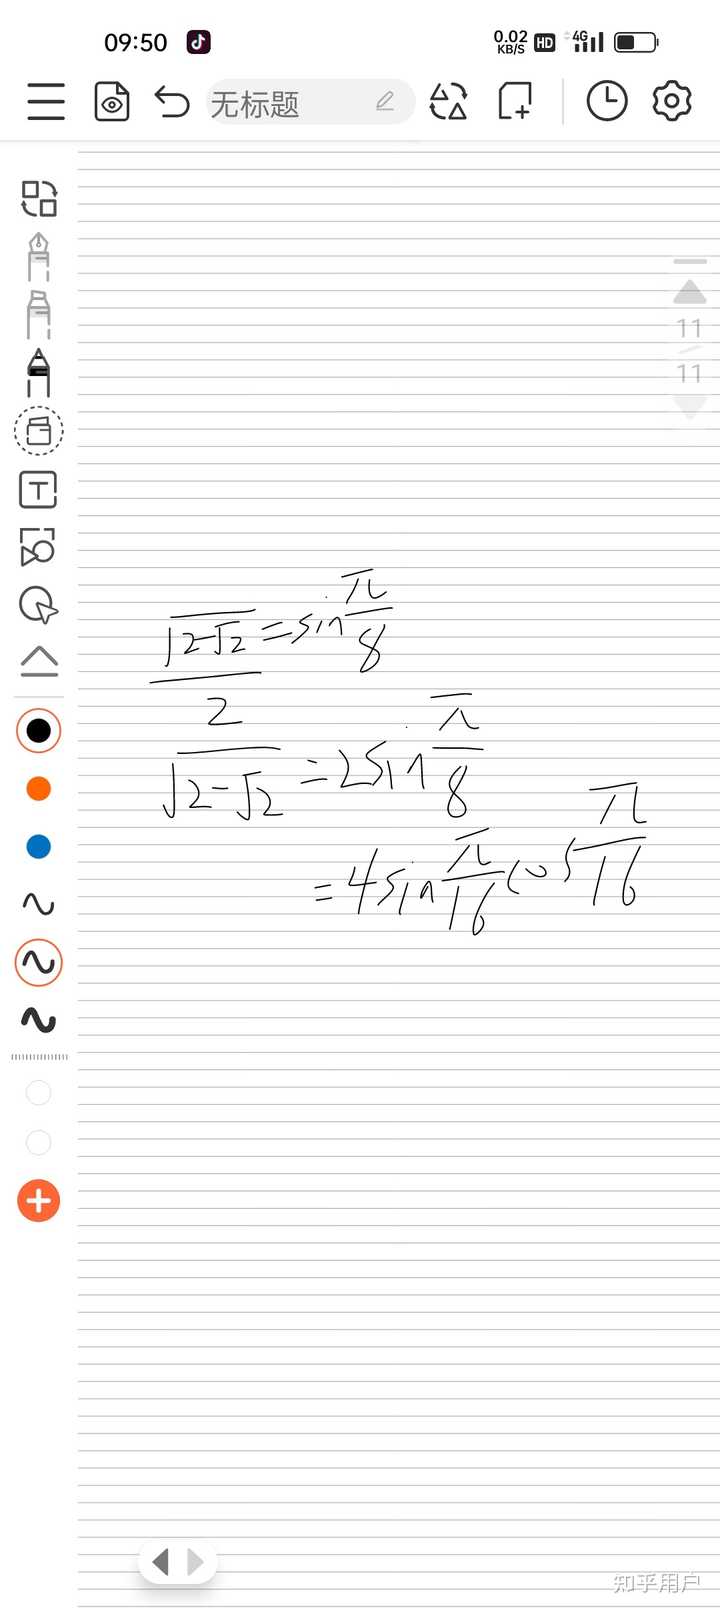 09:50 0.02 KB/S HD 4G
无标题
11
11
√(2-√2)/2 = sin π/8
√(2-√2) = 2sin π/8
= 4sin π/16 cos π/16
知乎用户